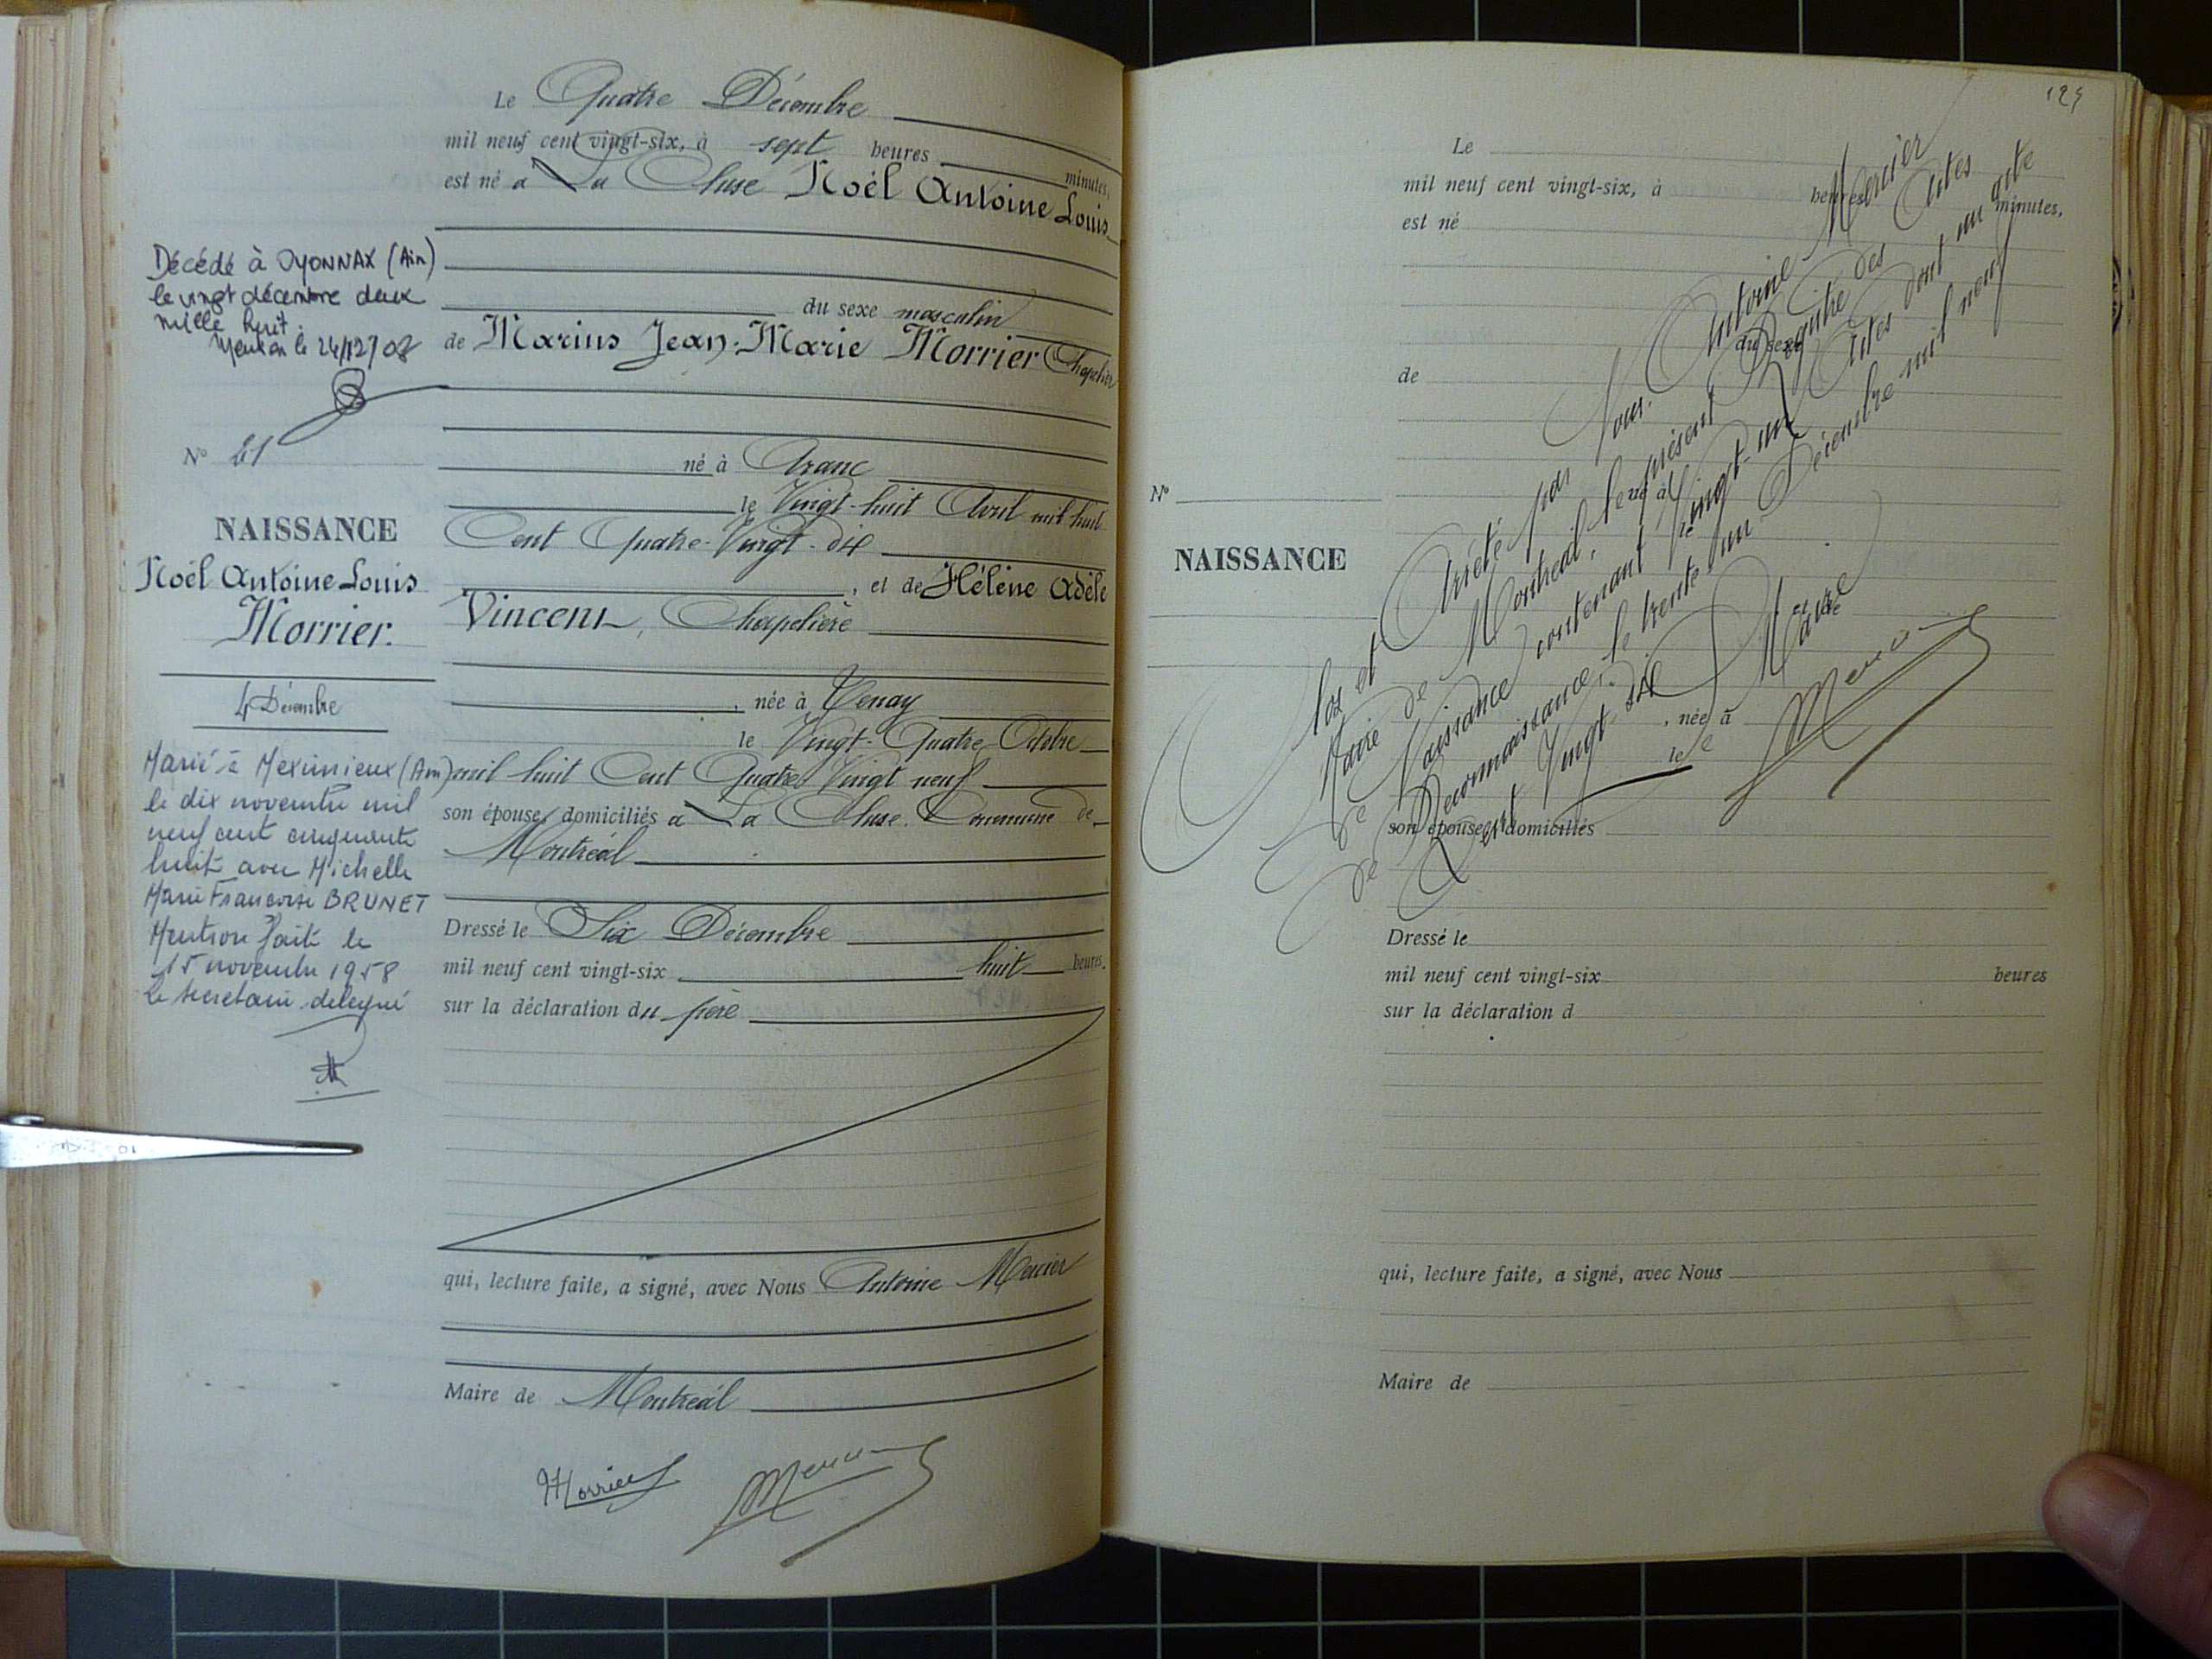 Le Quatre Décembre
mil neuf cent vingt-six, à sept heures minutes,
est né à La Cluse Noël Antoine Louis
du sexe masculin
de Marius Jean-Marie Morrier Chapelier
né à Aranc
le Vingt-huit Avril mil huit
Cent Quatre-Vingt-dix
, et de Hélène Adèle
Vincent, Chapelière
, née à Tenay
le Vingt-Quatre Octobre
mil huit Cent Quatre Vingt neuf
son épouse, domiciliés à La Cluse. Commune de
Montréal
Dressé le Six Décembre
mil neuf cent vingt-six huit heures.
sur la déclaration du père
qui, lecture faite, a signé, avec Nous Antoine Mercier
Maire de Montréal
Morrier Mercier
Décédé à OYONNAX (Ain)
le vingt décembre deux
mille huit.
le 24/12/08
N° 21
NAISSANCE
Noël Antoine Louis
Morrier.
4 Décembre
Marié à Meximieux (Ain)
le dix novembre mil
neuf cent cinquante
huit avec Michelle
Marie Françoise BRUNET
Mention faite le
15 novembre 1958
le secrétaire délégué
129
Le
mil neuf cent vingt-six, à heures minutes,
est né
du sexe
de
N°
né à
le
NAISSANCE
et de
, née à
le
son épouse, domiciliés
Dressé le
mil neuf cent vingt-six heures
sur la déclaration d
qui, lecture faite, a signé, avec Nous
Maire de
Clos et Arrêté par Nous. Antoine Mercier
Maire de Montréal, le présent Registre des Actes
de Naissance contenant Vingt-un Actes dont un acte
de Reconnaissance, le trente un Décembre mil neuf
Cent Vingt-six
Le Maire
Mercier